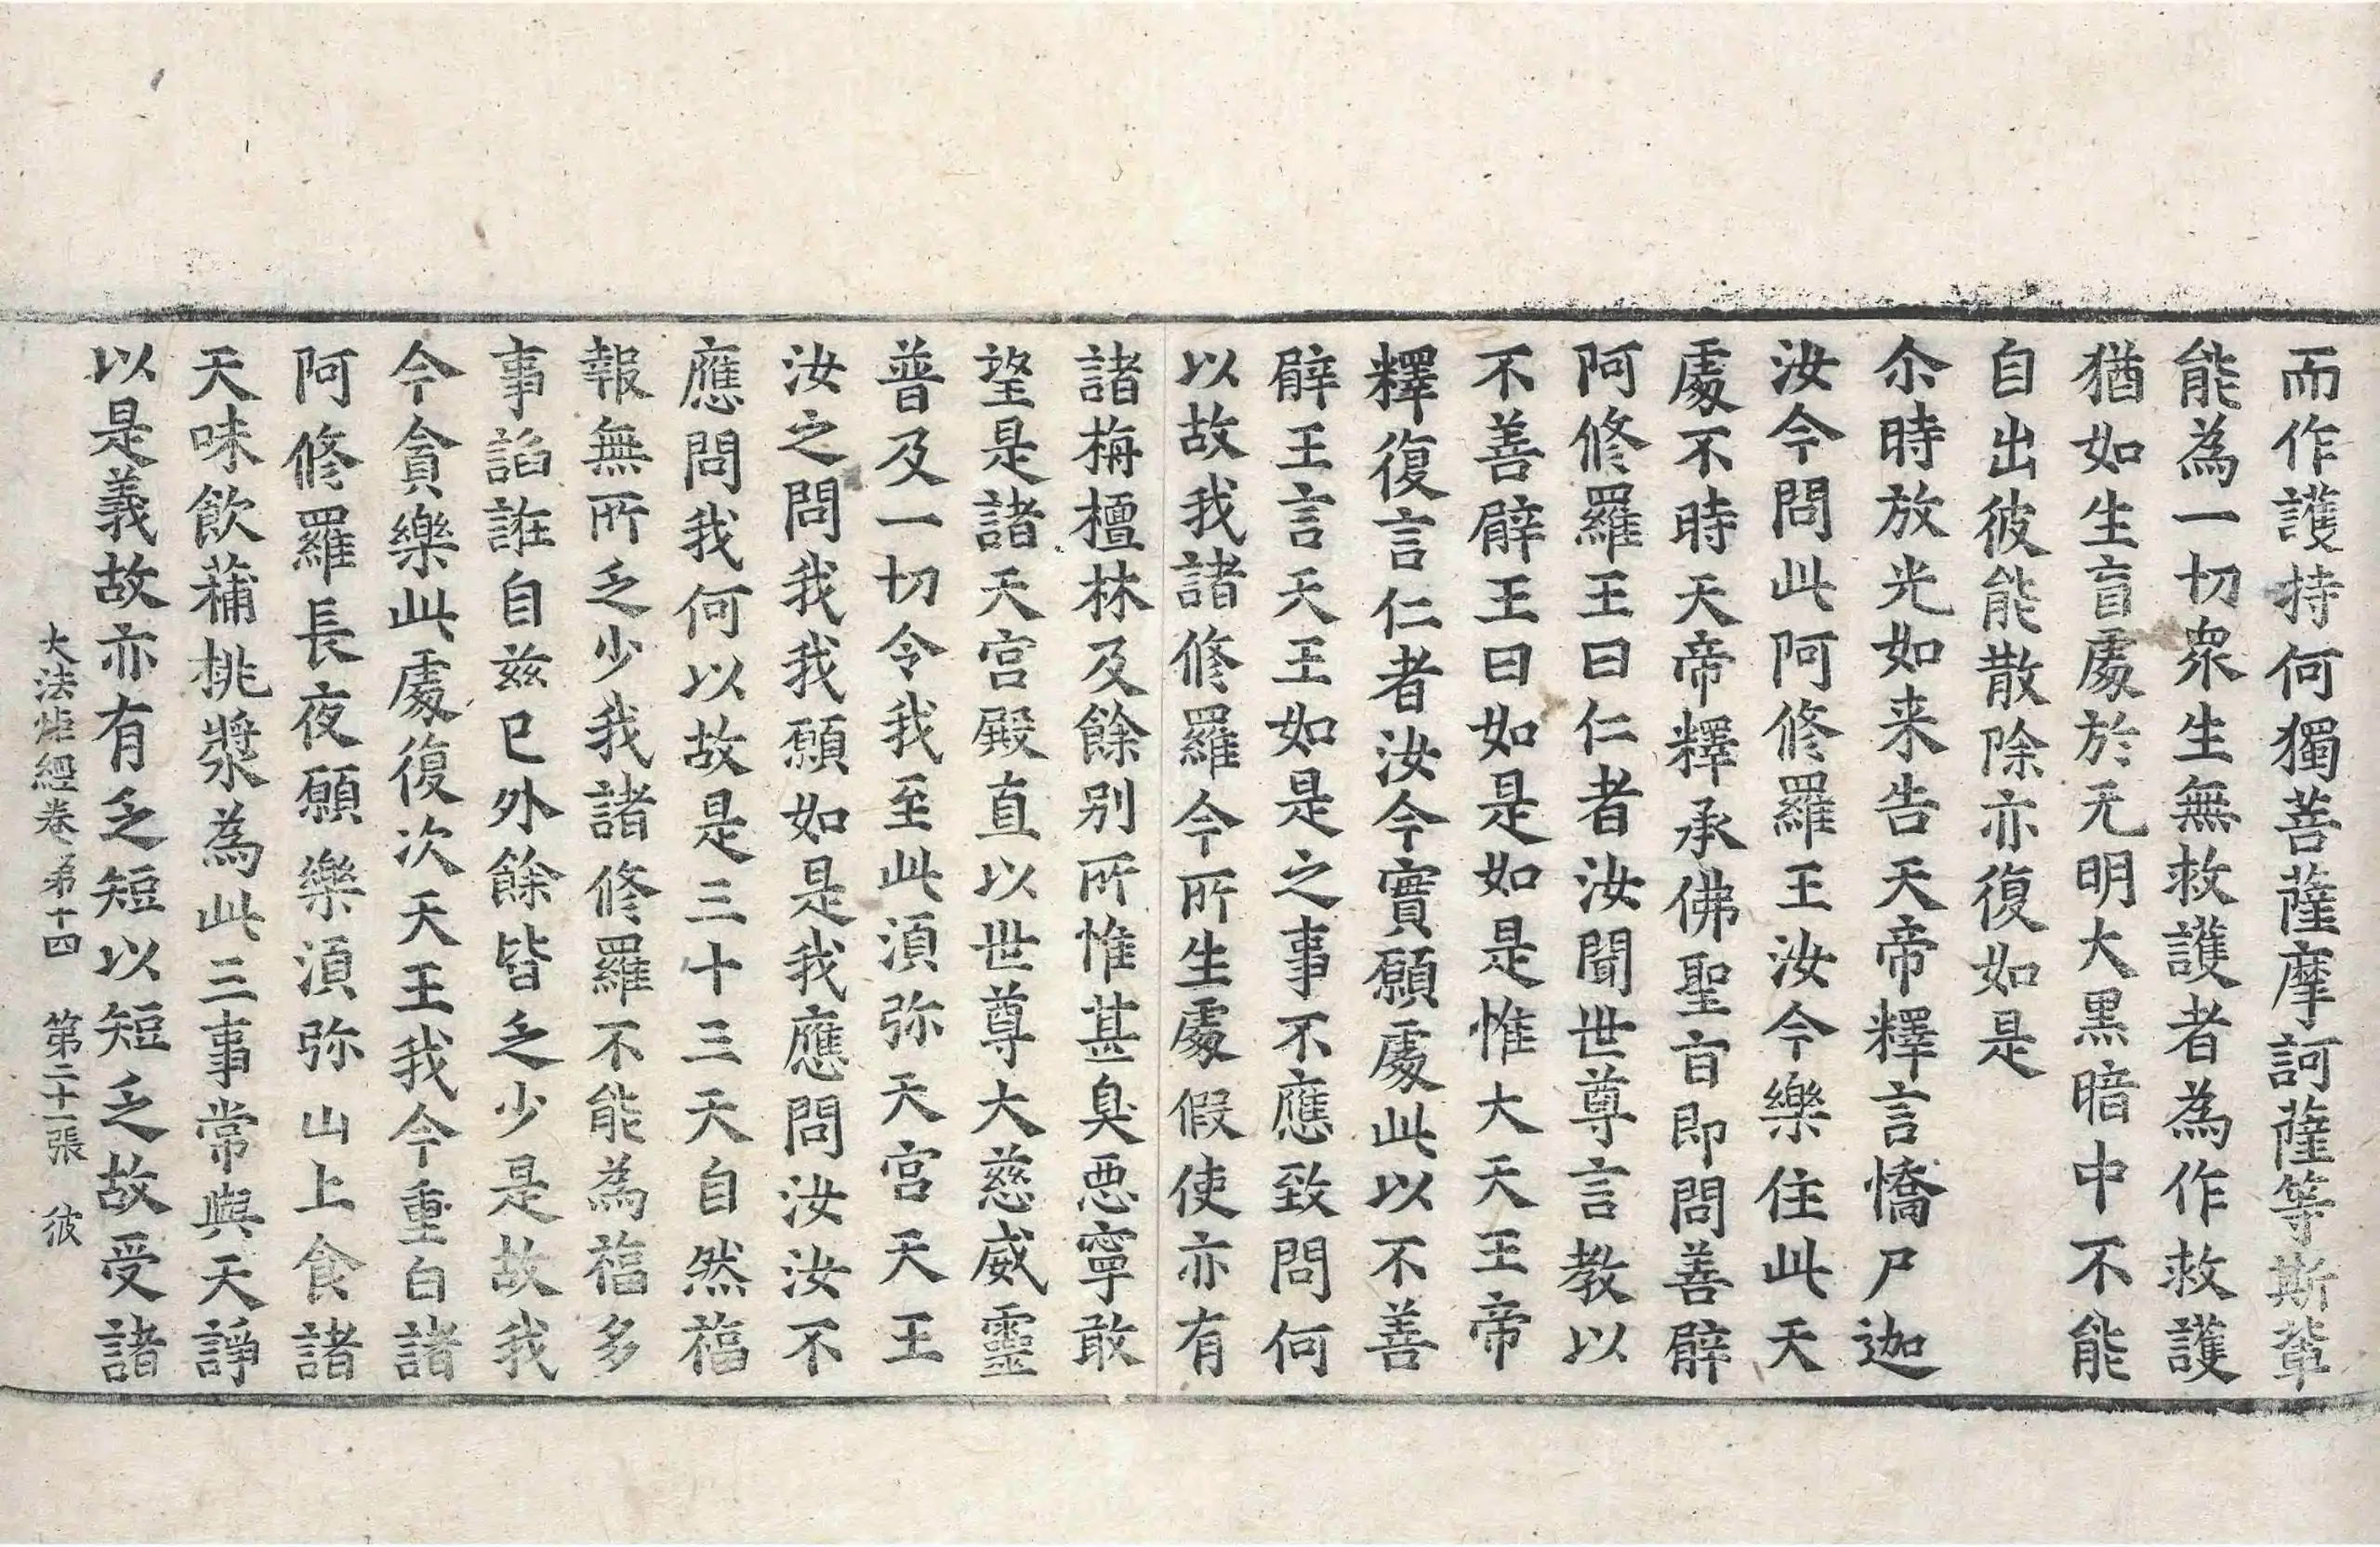 而作護持何獨菩薩摩訶薩等斯輩
能為一切衆生無救護者為作救護
猶如生盲處於无明大黑暗中不能
自出彼能散除亦復如是
尒時放光如来告天帝釋言憍尸迦
汝今問此阿修羅王汝今樂住此天
處不時天帝釋承佛聖旨即問善臂
阿修羅王曰仁者汝聞世尊言教以
不善臂王曰如是如是惟大天王帝
釋復言仁者汝今實願處此以不善
臂王言天王如是之事不應致問何
以故我諸修羅今所生處假使亦有
諸栴檀林及餘别所惟甚臭惡寧敢
望是諸天宮殿直以世尊大慈威靈
普及一切令我至此湏弥天宮天王
汝之問我我願如是我應問汝汝不
應問我何以故是三十三天自然福
報無所乏少我諸修羅不能為福多
事諂誑自兹已外餘皆乏少是故我
今貪樂此處復次天王我今重白諸
阿修羅長夜願樂湏弥山上食諸
天味飲蒱桃漿為此三事常與天諍
以是義故亦有乏短以短乏故受諸
大法炬經卷弟十四　第二十一張　彼